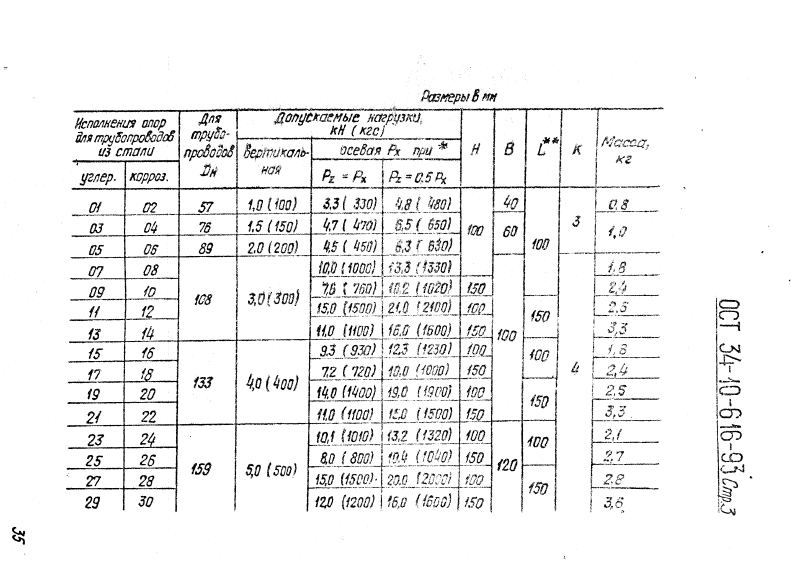 Размеры в мм
Исполнения опор для трубопроводов из стали | Для трубопроводов Dн | Допускаемые нагрузки, кН (кгс) | H | B | L** | K | Масса, кг
углер. | корроз. | вертикальная | осевая Px при *
Pz = Px | Pz = 0.5 Px
01 02 57 1,0 (100) 3,3 (330) 4,8 (480) 100 40 100 3 0,8
03 04 76 1,5 (150) 4,7 (470) 6,5 (650) 60 1,0
05 06 89 2,0 (200) 4,5 (450) 6,3 (630)
07 08 108 3,0 (300) 10,0 (1000) 13,3 (1330) 100 4 1,8
09 10 7,6 (760) 10,2 (1020) 150 2,4
11 12 15,0 (1500) 21,0 (2100) 100 150 2,5
13 14 11,0 (1100) 16,0 (1600) 150 3,3
15 16 133 4,0 (400) 9,3 (930) 12,3 (1230) 100 100 1,8
17 18 7,2 (720) 10,0 (1000) 150 2,4
19 20 14,0 (1400) 19,0 (1900) 100 150 2,5
21 22 11,0 (1100) 15,0 (1500) 150 3,3
23 24 159 5,0 (500) 10,1 (1010) 13,2 (1320) 100 120 100 2,1
25 26 8,0 (800) 10,4 (1040) 150 2,7
27 28 15,0 (1500) 20,0 (2000) 100 150 2,8
29 30 12,0 (1200) 16,0 (1600) 150 3,6
ОСТ 34-10-616-93 Стр.3
35